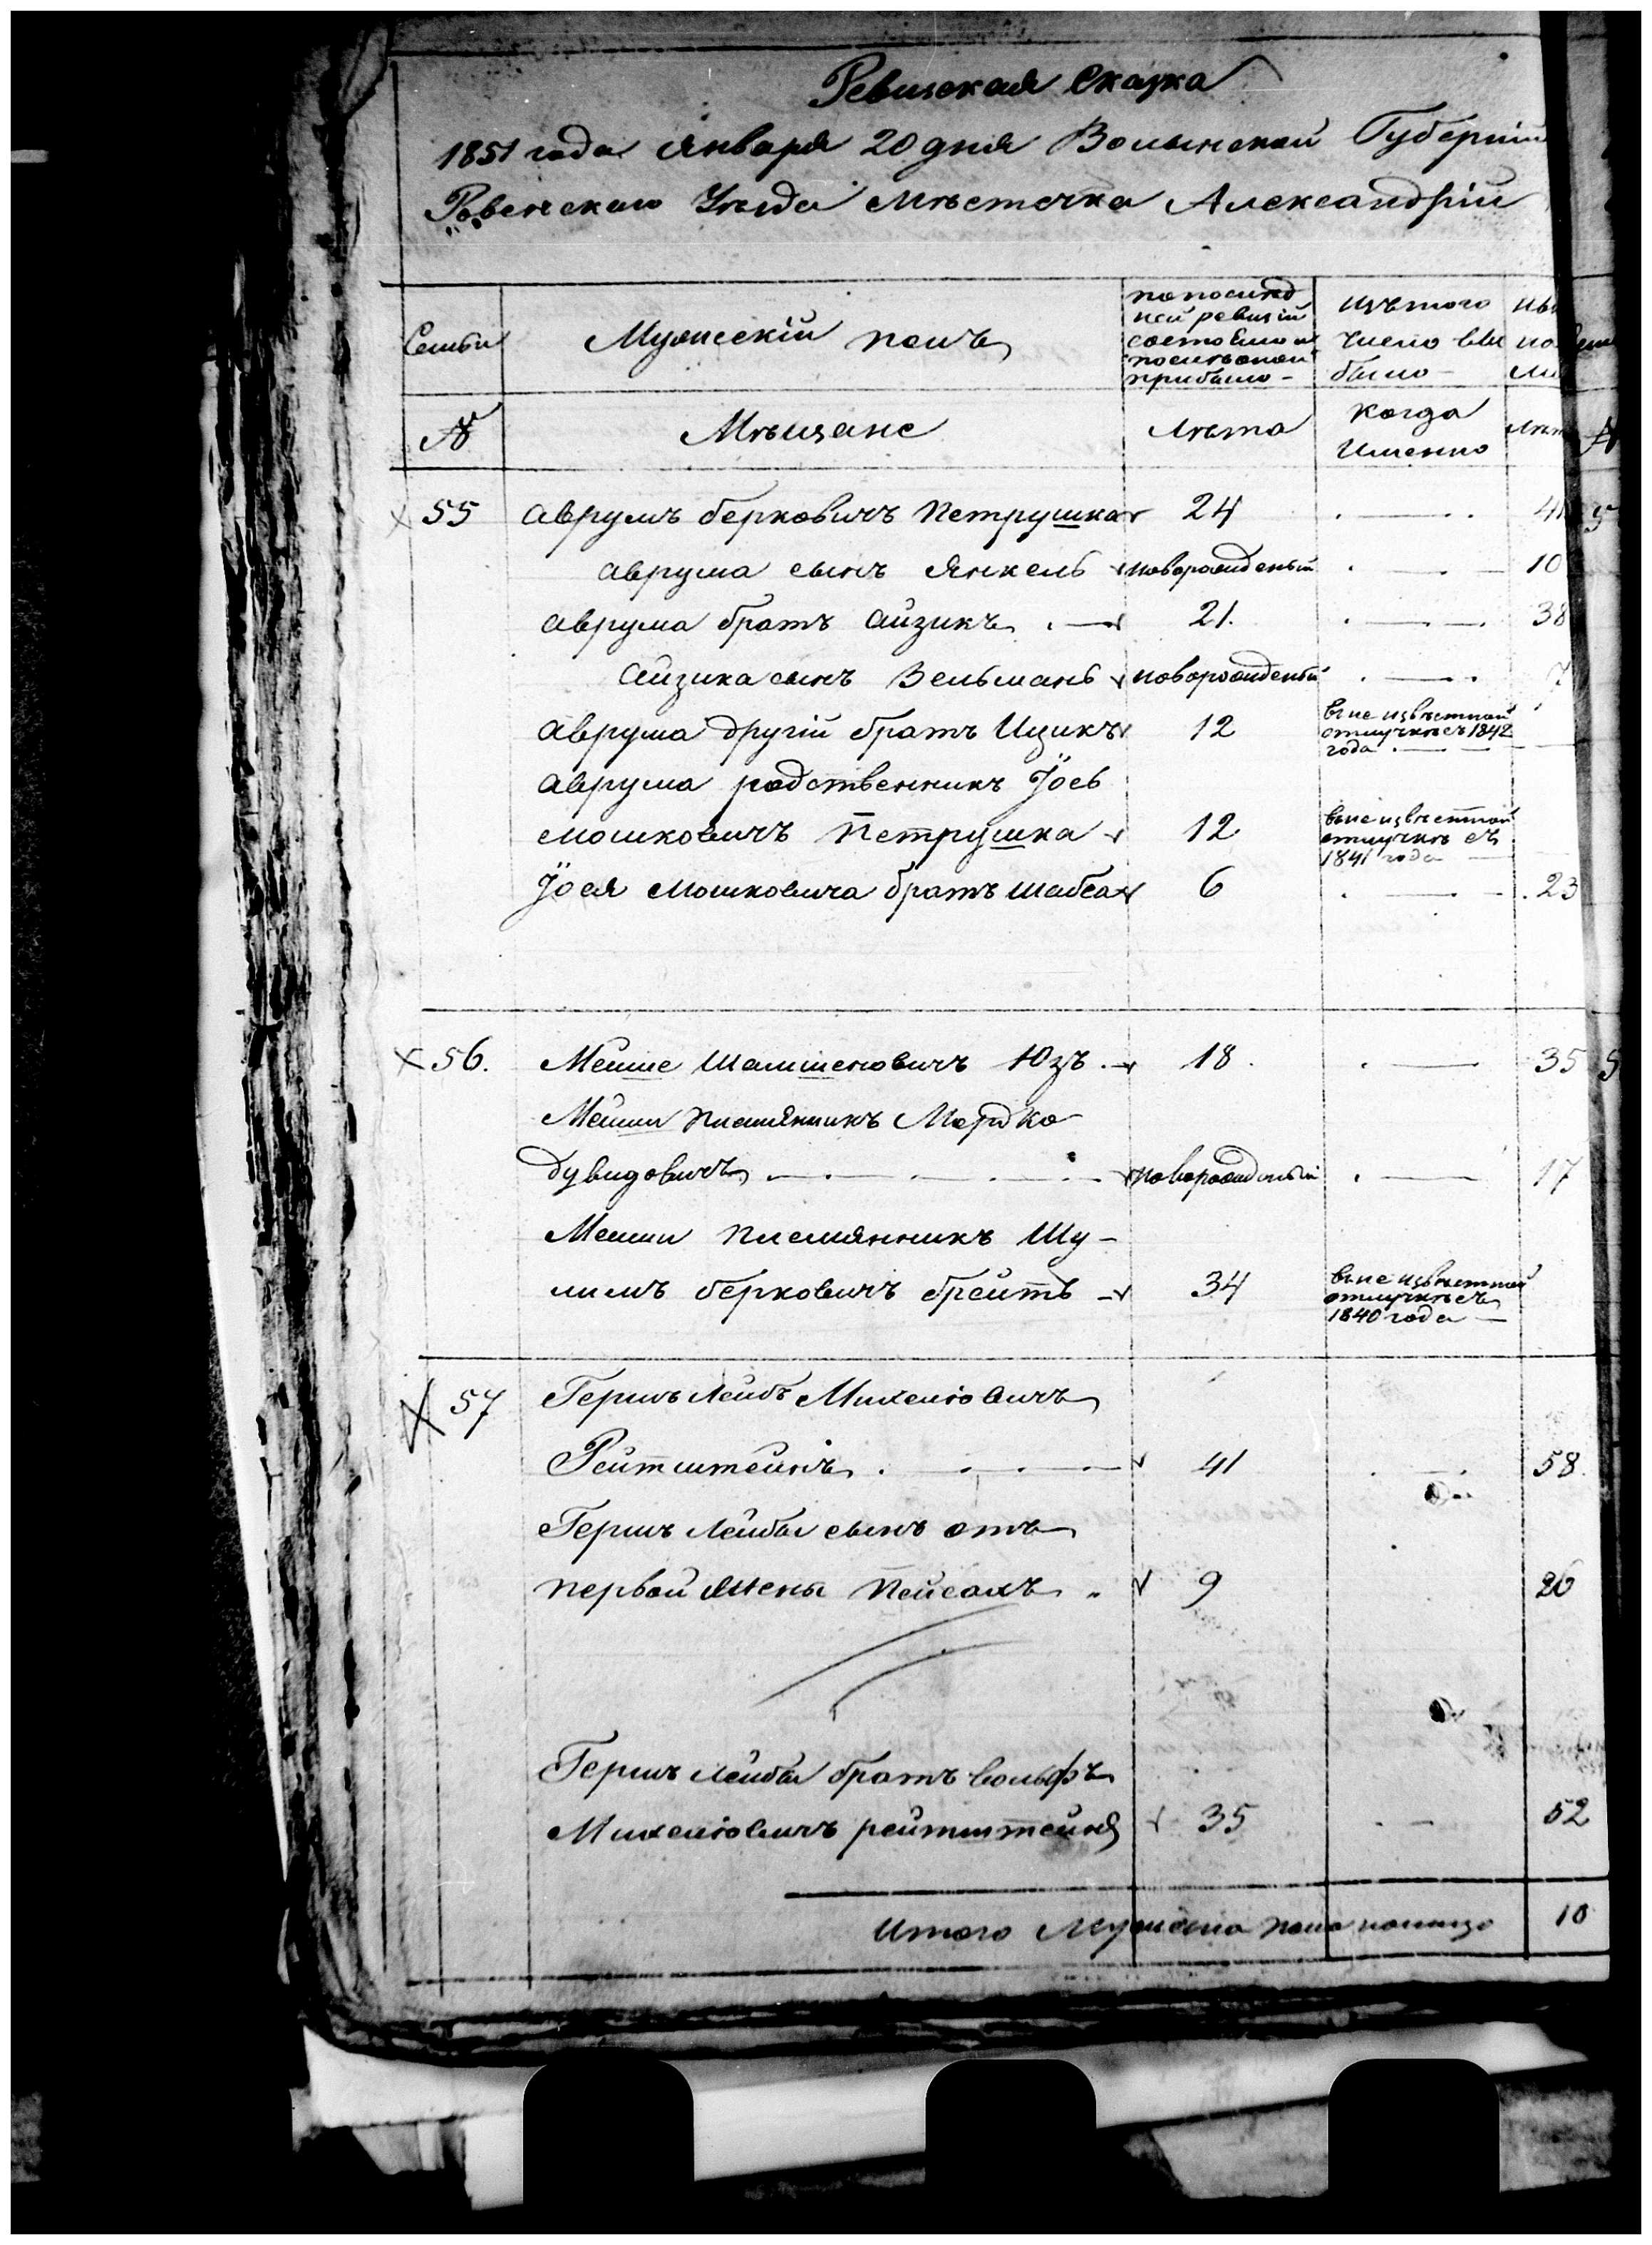 Ревизская Сказка
1851 года Января 20 дня Волынской Губерніи
Ровенскаго Уѣзда Мѣстечка Александріи
Семьи
Мужескій полъ
по послѣд
ней ревизіи
состояло и
послѣ оной
прибыло -
изъ того
число вы
было -
№
Мѣщане
Лѣта
когда
Именно
55 Аврумъ Берковичъ Петрушка 24 41
Аврума сынъ Янкель новорожденый 10
Аврума братъ Айзикъ 21. 38
Айзика сынъ Зельманъ новорожденый 7
Аврума другій братъ Ицикъ 12 в не извѣстной
отлучкѣ съ 1842
года
Аврума родственникъ Іось
Мошковичъ Петрушка 12 в не извѣстной
отлучкѣ съ
1841 года
Іося Мошковича братъ Шабса 6 23
56. Мейше Шамшеновичъ Юзъ 18. 35
Мейши племянникъ Мордко
Дувидовичъ новорожденый 17
Мейши племянникъ Шу-
лимъ Берковичъ Брейтъ 34 в не извѣстной
отлучкѣ съ
1840 года
57 Гершъ Лейбъ Михелювичъ
Рейтштейнъ 41 58.
Гершъ Лейбы сынъ отъ
первой жены Пейсахъ 9 26
Гершъ Лейбы братъ Вольфъ
Михелювичъ Рейтштейнъ 35 52
Итого Мужеска пола налицо 10